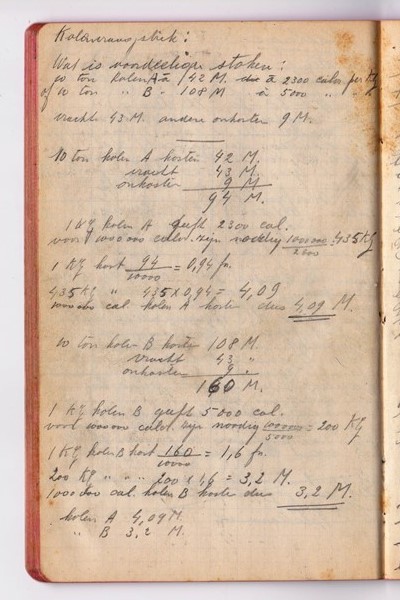 Kolenvraagstuk:
Wat is voordeeliger stoken:
10 ton kolen A à 42 M. à 2300 calor. per kg
of 10 ton " B " 108 M à 5000 " "
vracht 43 M. andere onkosten 9 M.
10 ton kolen A kosten 42 M.
vracht 43 M.
onkosten 9 M
94 M.
1 Kg kolen A geeft 2300 cal.
voor 1000000 calor. zijn noodig 1000000/2300 = 435 Kg
1 Kg kost 94/10000 = 0,94 fn.
435 Kg " 435 x 0,94 = 4,09
1000000 cal. kolen A kosten dus 4,09 M.
10 ton kolen B kosten 108 M.
vracht 43 "
onkosten 9 "
160 M.
1 Kg kolen B geeft 5000 cal.
voor 1000000 calor. zijn noodig 1000000/5000 = 200 Kg
1 Kg kolen B kost 160/10000 = 1,6 fn.
200 Kg " " " 200 x 1,6 = 3,2 M.
1000000 cal. kolen B kosten dus 3,2 M.
kolen A 4,09 M.
" B 3,2 M.